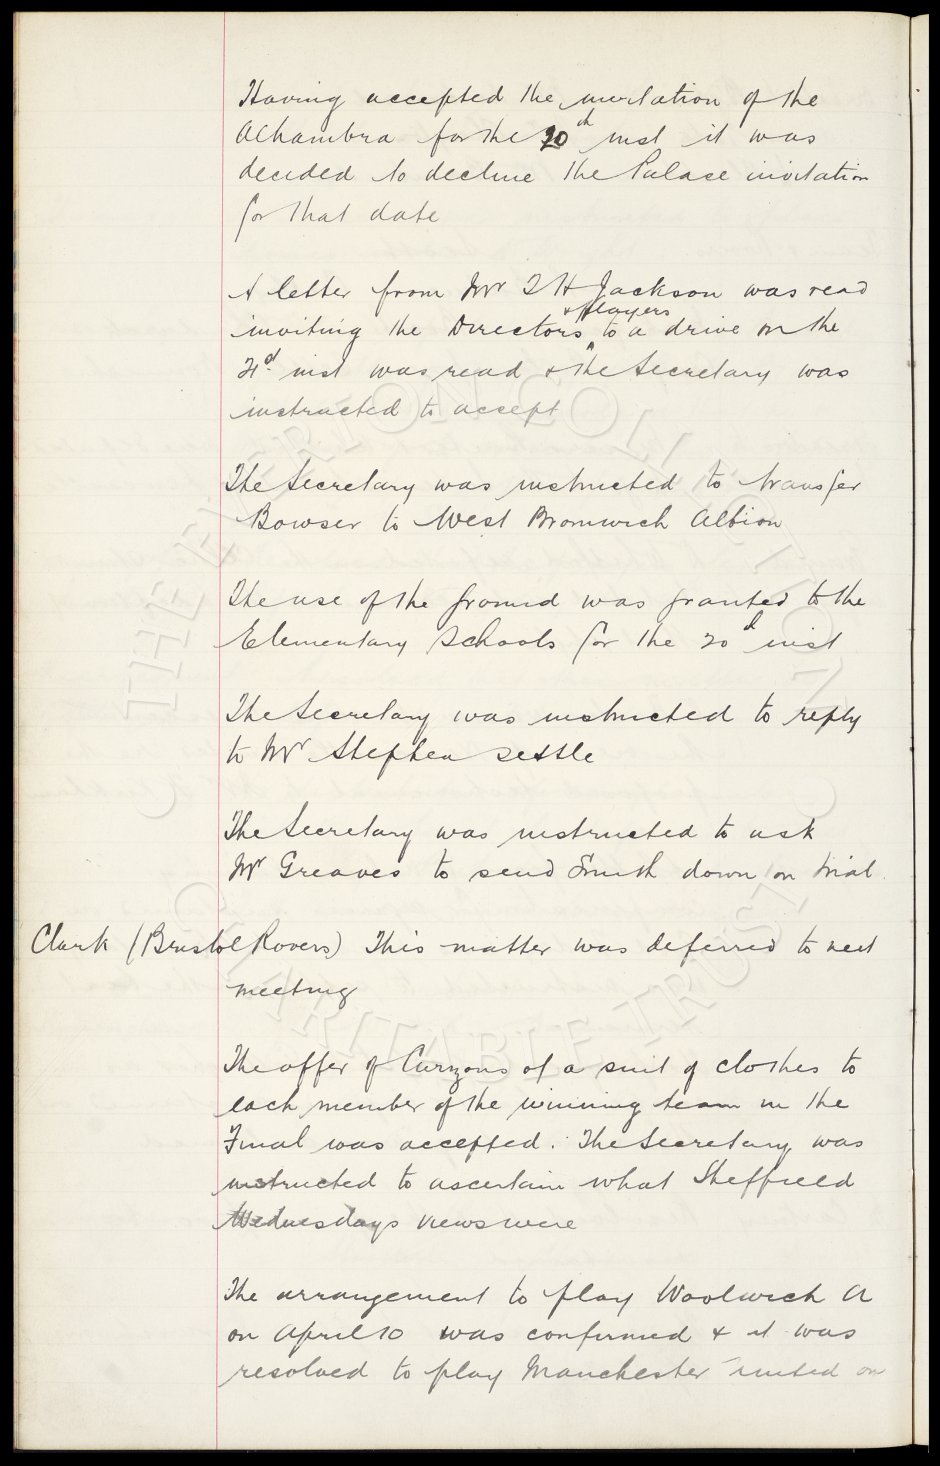 Having accepted the invitation of the
Alhambra for the 20th inst it was
decided to decline the Palace invitation
for that date
A letter from Mr T H Jackson was read
inviting the Directors & players to a drive on the
21d inst was read & the Secretary was
instructed to accept
The Secretary was instructed to transfer
Bowser to West Bromwich Albion
The use of the ground was granted to the
Elementary Schools for the 20d inst
The Secretary was instructed to reply
to Mr Stephen Settle
The Secretary was instructed to ask
Mr Greaves to send Smith down on trial.
Clark (Bristol Rovers) This matter was deferred to next
meeting
The offer of Curzons of a suit of clothes to
each member of the winning team in the
Final was accepted. The Secretary was
instructed to ascertain what Sheffield
Wednesdays views were
The arrangement to play Woolwich A
on April 10 was confirmed & it was
resolved to play Manchester United on
THE EVERTON COLLECTION
CHARITABLE TRUST